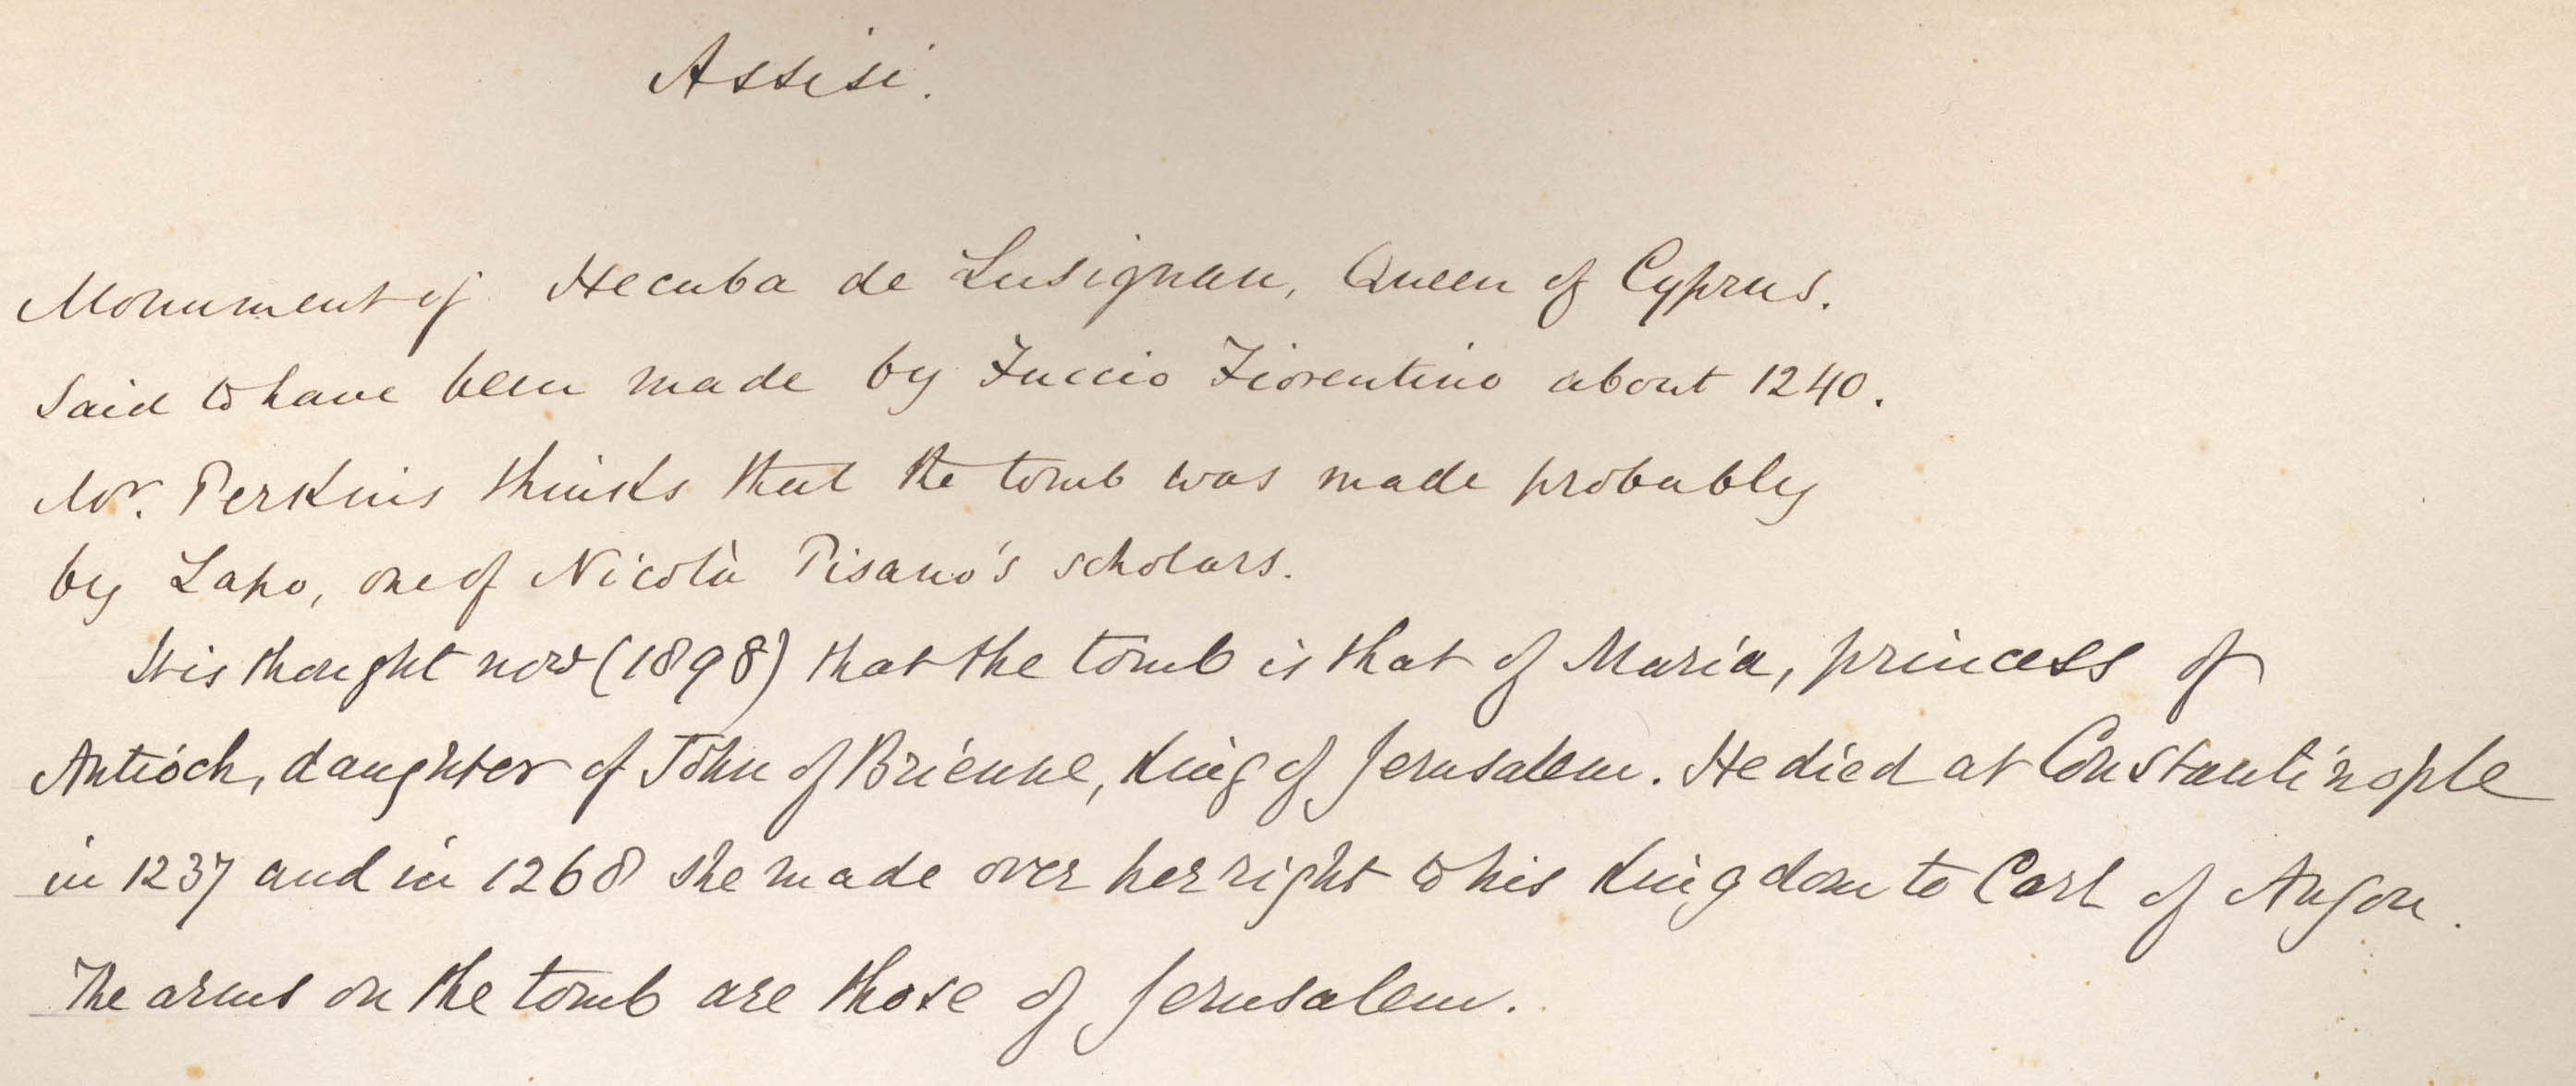 Assisi.
Monument of Hecuba de Lusignan, Queen of Cyprus.
Said to have been made by Fuccio Fiorentino about 1240.
Mr. Perkins thinks that the tomb was made probably
by Lapo, one of Nicolà Pisano's scholars.
It is thought now (1898) that the tomb is that of Maria, princess of
Antioch, daughter of John of Brienne, King of Jerusalem. He died at Constantinople
in 1237 and in 1268 she made over her right to his Kingdom to Carl of Anjou.
The arms on the tomb are those of Jerusalem.